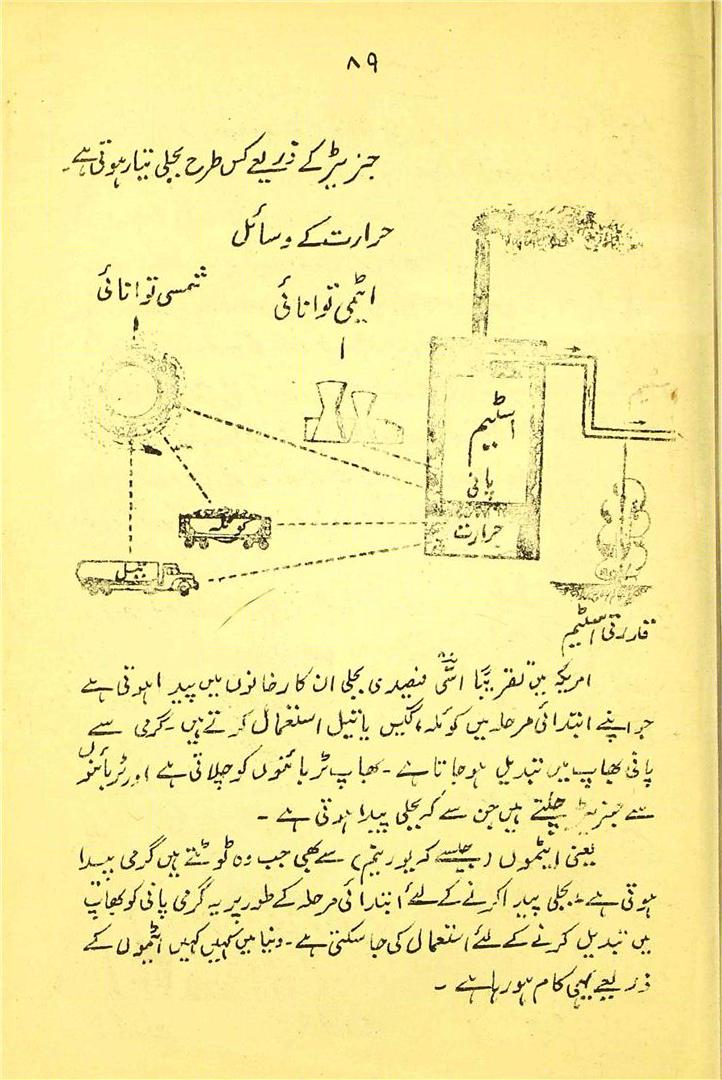 ۸۹
جنریٹر کے ذریعے کس طرح بجلی تیار ہوتی ہے۔
حرارت کے وسائل
ایٹمی توانائی
شمسی توانائی
اسٹیم
پانی
حرارت
کوئلہ
تیل
قدرتی اسٹیم
امریکہ میں تقریباً اسّی فیصدی بجلی ان کارخانوں میں پیدا ہوتی ہے
جو اپنے ابتدائی مرحلہ میں کوئلہ، گیس یا تیل استعمال کرتے ہیں۔ گرمی سے
پانی بھاپ میں تبدیل ہو جاتا ہے۔ بھاپ ٹربائنوں کو چلاتی ہے اور ٹربائنوں
سے جنریٹر چلتے ہیں جن سے کہ بجلی پیدا ہوتی ہے۔
یعنی ایٹموں (جیسے کہ یورینیم) سے بھی جب وہ ٹوٹتے ہیں گرمی پیدا
ہوتی ہے۔ بجلی پیدا کرنے کے لئے ابتدائی مرحلہ کے طور پر یہ گرمی پانی کو بھاپ
میں تبدیل کرنے کے لئے استعمال کی جا سکتی ہے۔ دنیا میں کہیں کہیں ایٹموں کے
ذریعے یہی کام ہو رہا ہے۔